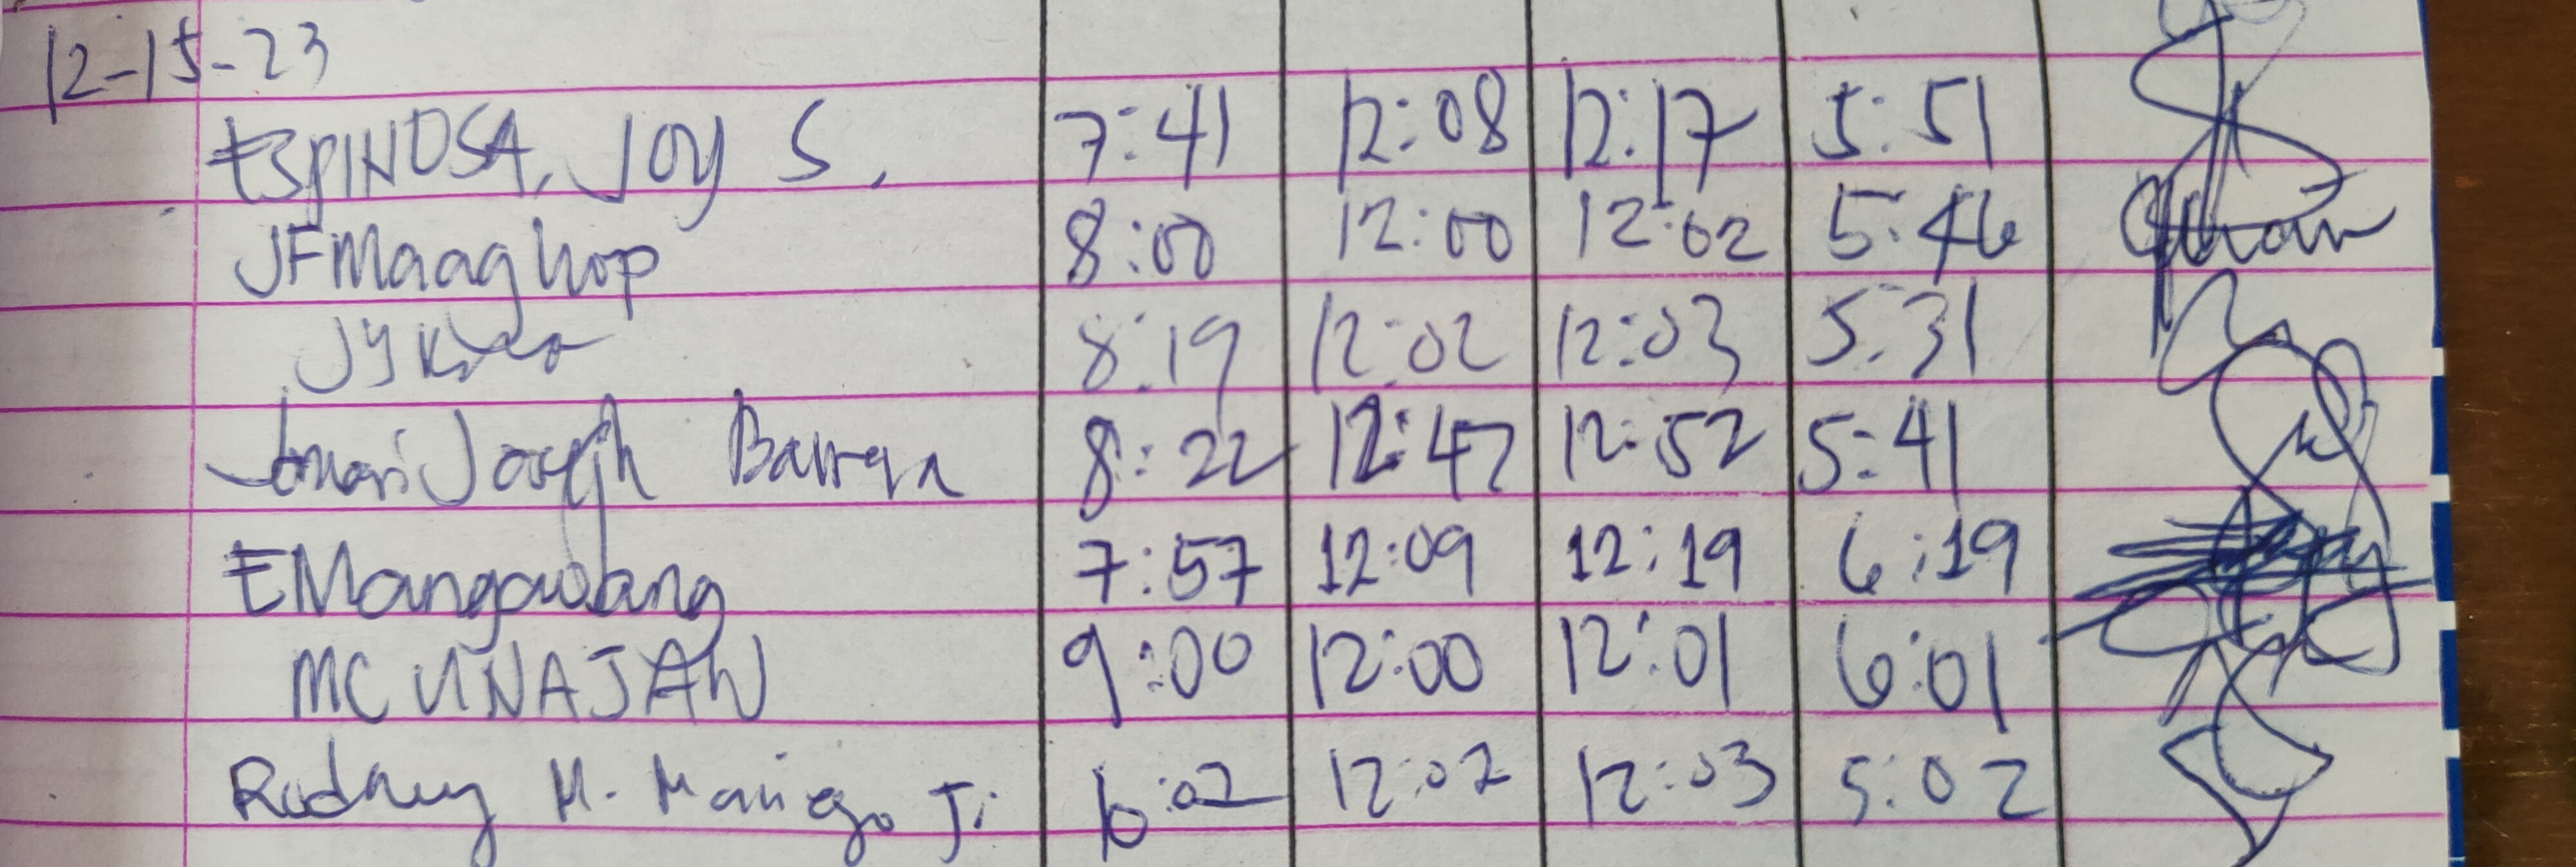 12-15-23
ESPINOSA, JOY S. 7:41 12:08 12:17 5:51
JFMaaghop 8:00 12:00 12:02 5:46
8:19 12:02 12:03 5:31
Joseph 8:22 12:47 12:52 5:41
EMangawang 7:57 12:09 12:19 6:19
MCUNAJAN 9:00 12:00 12:01 6:01
Rodney M. Jr 12:02 12:03 5:02